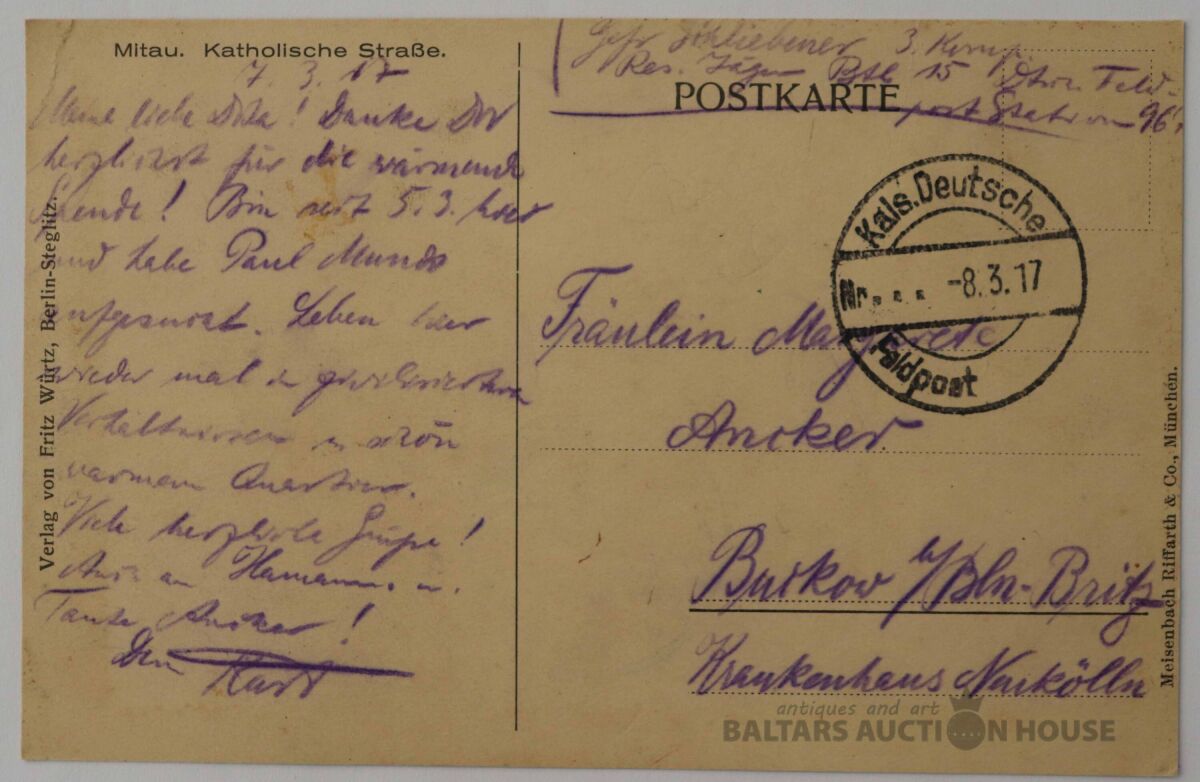 Mitau. Katholische Straße.
7. 3. 17
Meine liebe Dota! Danke Dir
herzlichst für die wärmende
Spende! Bin seit 5.3. hier
und habe Paul Munds
aufgesucht. Leben hier
wieder mal in zivilisierten
Verhältnissen u. schön
warmem Quartier.
Viele herzliche Grüße!
Auch an Hamann u.
Tante Ancker!
Dein Kurt
Verlag von Fritz Würtz, Berlin-Steglitz.
Gefr. Schliebener 3. Komp.
Res. Jäger Batl 15 Dtsch. Feld-
POSTKARTE
post Station 96
Kais. Deutsche
Nr.... -8.3.17
Feldpost
Fräulein Margarete
Ancker.
Buckow b/Bln-Britz
Krankenhaus Neukölln
Meisenbach Riffarth & Co., München.
antiques and art
BALTARS AUCTION HOUSE